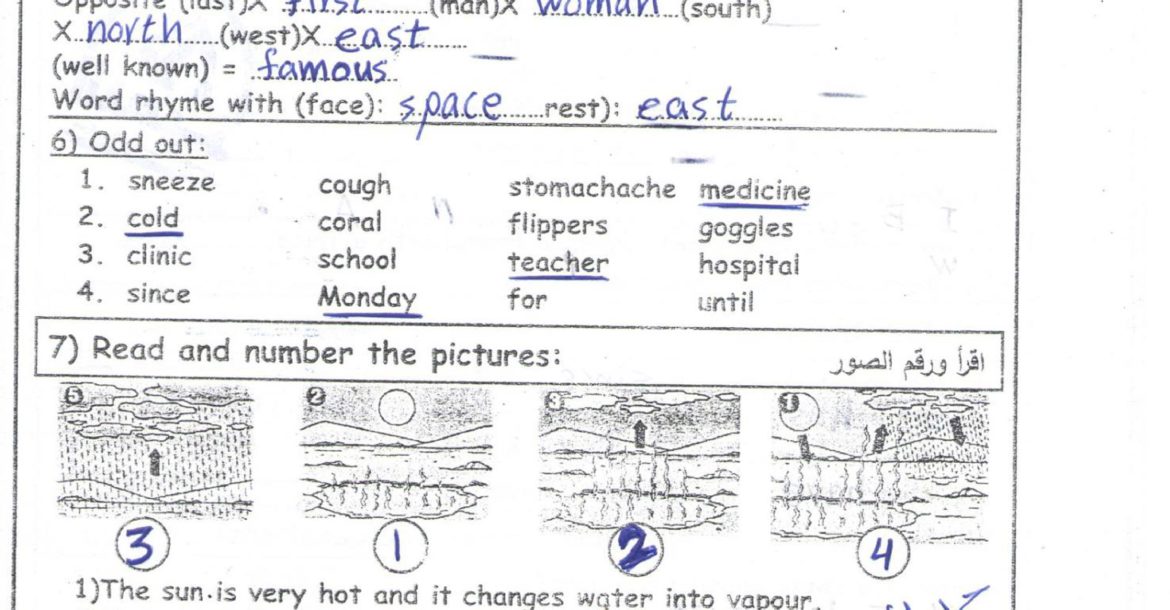 Opposite (last)X first..........(man)X woman...(south)
X..north.....(west)X..east.......
(well known) = ..famous..
Word rhyme with (face): space......rest): east........
6) Odd out:
1. sneeze cough stomachache medicine
2. cold coral flippers goggles
3. clinic school teacher hospital
4. since Monday for until
7) Read and number the pictures: اقرأ ورقم الصور
5 2 3 1
3 1 2 4
1)The sun is very hot and it changes water into vapour.